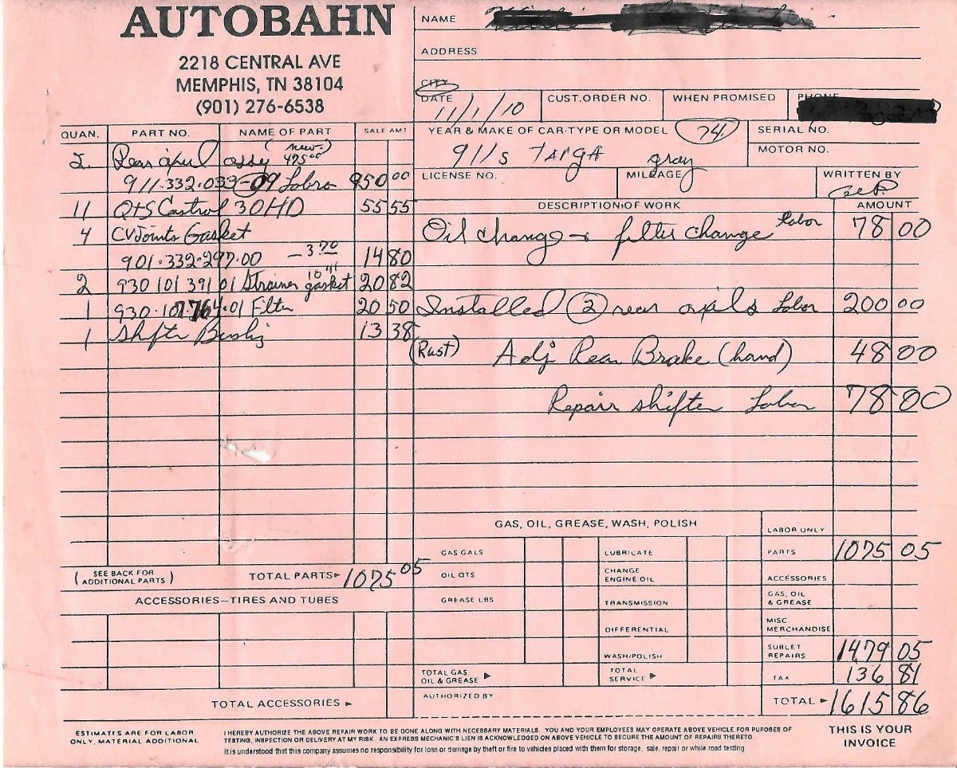 AUTOBAHN
2218 CENTRAL AVE
MEMPHIS, TN 38104
(901) 276-6538
NAME
ADDRESS
CITY
DATE 11/1/10 CUST. ORDER NO. WHEN PROMISED PHONE
YEAR & MAKE OF CAR-TYPE OR MODEL 74 SERIAL NO.
911s TARGA gray MOTOR NO.
LICENSE NO. MILEAGE WRITTEN BY
QUAN. PART NO. NAME OF PART SALE AMT
2 Rear axel assy (new) 475 00
911.332.033-09 Lobro 950 00
11 QTS Castrol 30HD 55 55
4 CV Joints Gasket
901.332.297.00 - 3.70 14 80
2 930 101 391 01 Strainer gasket 10 41 20 82
1 930.107.764.01 Filter 20 50
1 Shifter Bushig 13 38
(SEE BACK FOR ADDITIONAL PARTS) TOTAL PARTS 1075 05
ACCESSORIES—TIRES AND TUBES
TOTAL ACCESSORIES
DESCRIPTION OF WORK AMOUNT
Oil change & filter change Labor 78 00
Installed (2) rear axils Labor 200 00
(Rust) Adj Rear Brake (hand) 48 00
Repair shifter Labor 78 00
GAS, OIL, GREASE, WASH, POLISH
GAS GALS
OIL QTS
GREASE LBS
TOTAL GAS OIL & GREASE
LUBRICATE
CHANGE ENGINE OIL
TRANSMISSION
DIFFERENTIAL
WASH/POLISH
TOTAL SERVICE
AUTHORIZED BY
LABOR ONLY
PARTS 1075 05
ACCESSORIES
GAS, OIL & GREASE
MISC MERCHANDISE
SUBLET REPAIRS 1479 05
TAX 136 81
TOTAL 1615 86
ESTIMATES ARE FOR LABOR ONLY, MATERIAL ADDITIONAL
I HEREBY AUTHORIZE THE ABOVE REPAIR WORK TO BE DONE ALONG WITH NECESSARY MATERIALS YOU AND YOUR EMPLOYEES MAY OPERATE ABOVE VEHICLE FOR PURPOSES OF
TESTING, INSPECTION OR DELIVERY AT MY RISK AN EXPRESS MECHANIC'S LIEN IS ACKNOWLEDGED ON ABOVE VEHICLE TO SECURE THE AMOUNT OF REPAIRS THERETO
It is understood that this company assumes no responsibility for loss or damage by theft or fire to vehicles placed with them for storage, sale, repair or while road testing
THIS IS YOUR INVOICE